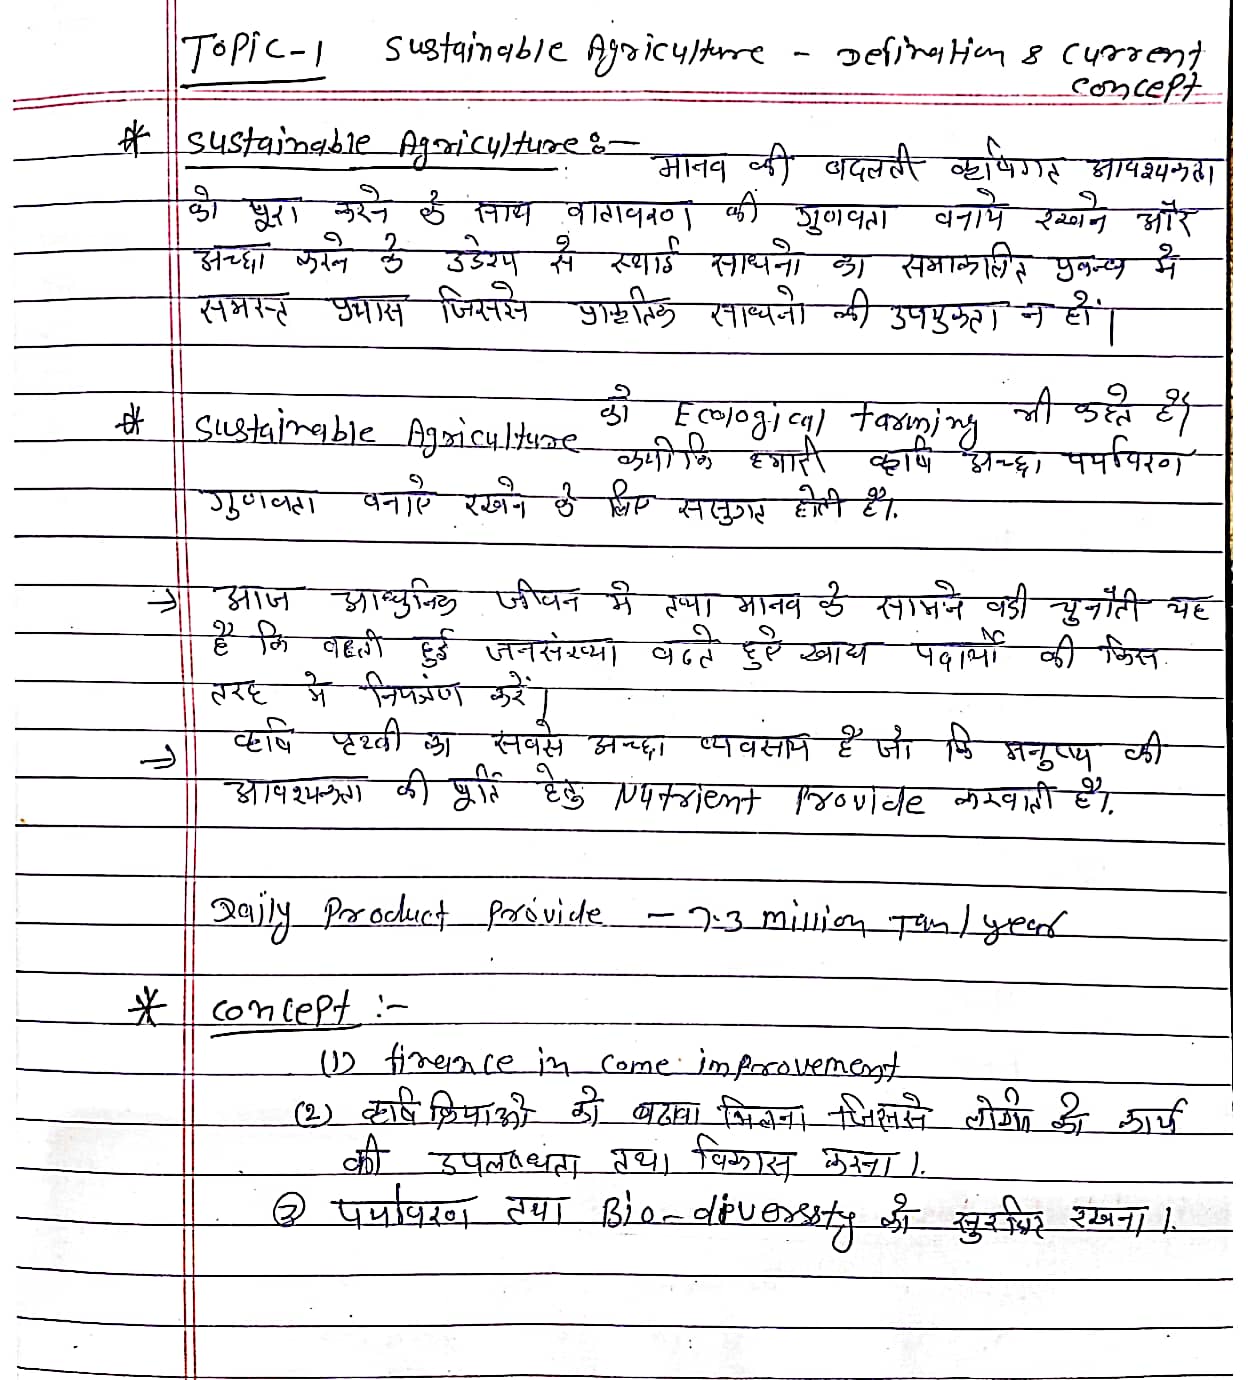 Topic-1 Sustainable Agriculture - Defination & Current
concept
* Sustainable Agriculture :- मानव की बदलती कृषिगत आवश्यकता
को पूरा करने के साथ वातावरण की गुणवता बनाये रखने और
अच्छा करने के उद्देश्य से स्थाई साधनो का समाकलित प्रबन्ध मे
समस्त प्रयास जिससे प्राकृतिक साधनो की उपयुक्तता न हो।
* Sustainable Agriculture को Ecological farming भी कहते है।
क्योकि हमारी कृषि अच्छा पर्यावरण
गुणवता बनाए रखने के लिए होती है।
→ आज आधुनिक जीवन मे तथा मानव के सामने बडी चुनौती यह
है कि बढती हुई जनसंख्या बढते हुऐ खाद्य पदार्थो की किस
तरह से नियंत्रण करें।
→ कृषि पृथ्वी का सबसे अच्छा व्यवसाय है जो कि मनुष्य की
आवश्यकता की पूर्ति हेतु Nutrient Provide करवाती है।
Daily Product Provide - 7.3 million Tan/year
* Concept :-
(1) finance in come improvement
(2) कृषि क्रियाओ को बढावा मिलना जिससे लोगो को कार्य
की उपलब्धता तथा विकास करना।
③ पर्यावरण तथा Bio-diversity को सुरक्षित रखना।